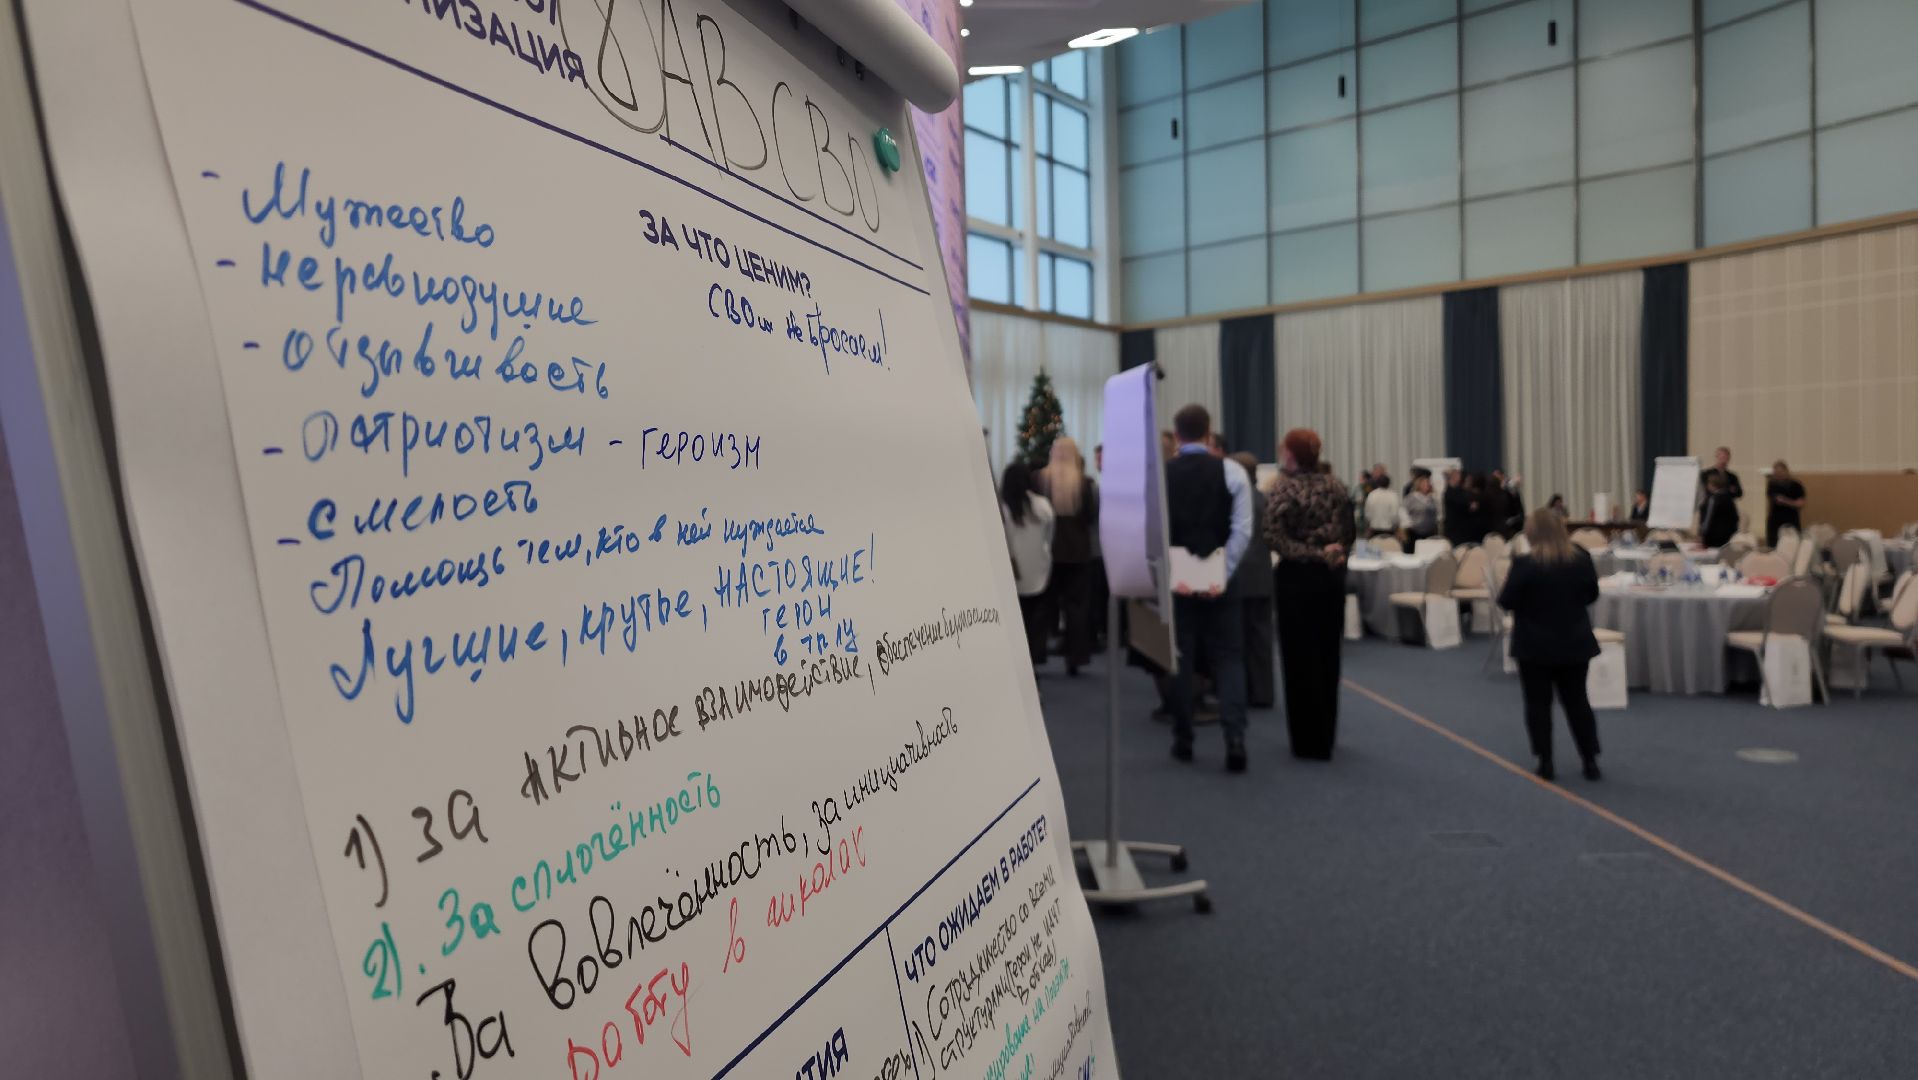 ИЗАЦИЯ
АВСВО
ЗА ЧТО ЦЕНИМ?
СВОи не бросаем!
- Мужество
- Неравнодушие
- Отзывчивость
- Патриотизм - ГЕРОИЗМ
- Смелость
Помощь тем, кто в ней нуждается
Лучшие, крутые, НАСТОЯЩИЕ!
герои
в тылу
1) ЗА АКТИВНОЕ ВЗАИМОДЕЙСТВИЕ, обеспечение безопасности
2). За сплочённость
За Вовлечённость, за инициативность
работу в школах
ЧТО ОЖИДАЕМ В РАБОТЕ?
1) Сотрудничество со всеми
структурами (Герои не идут
в обход)
ТИЯ